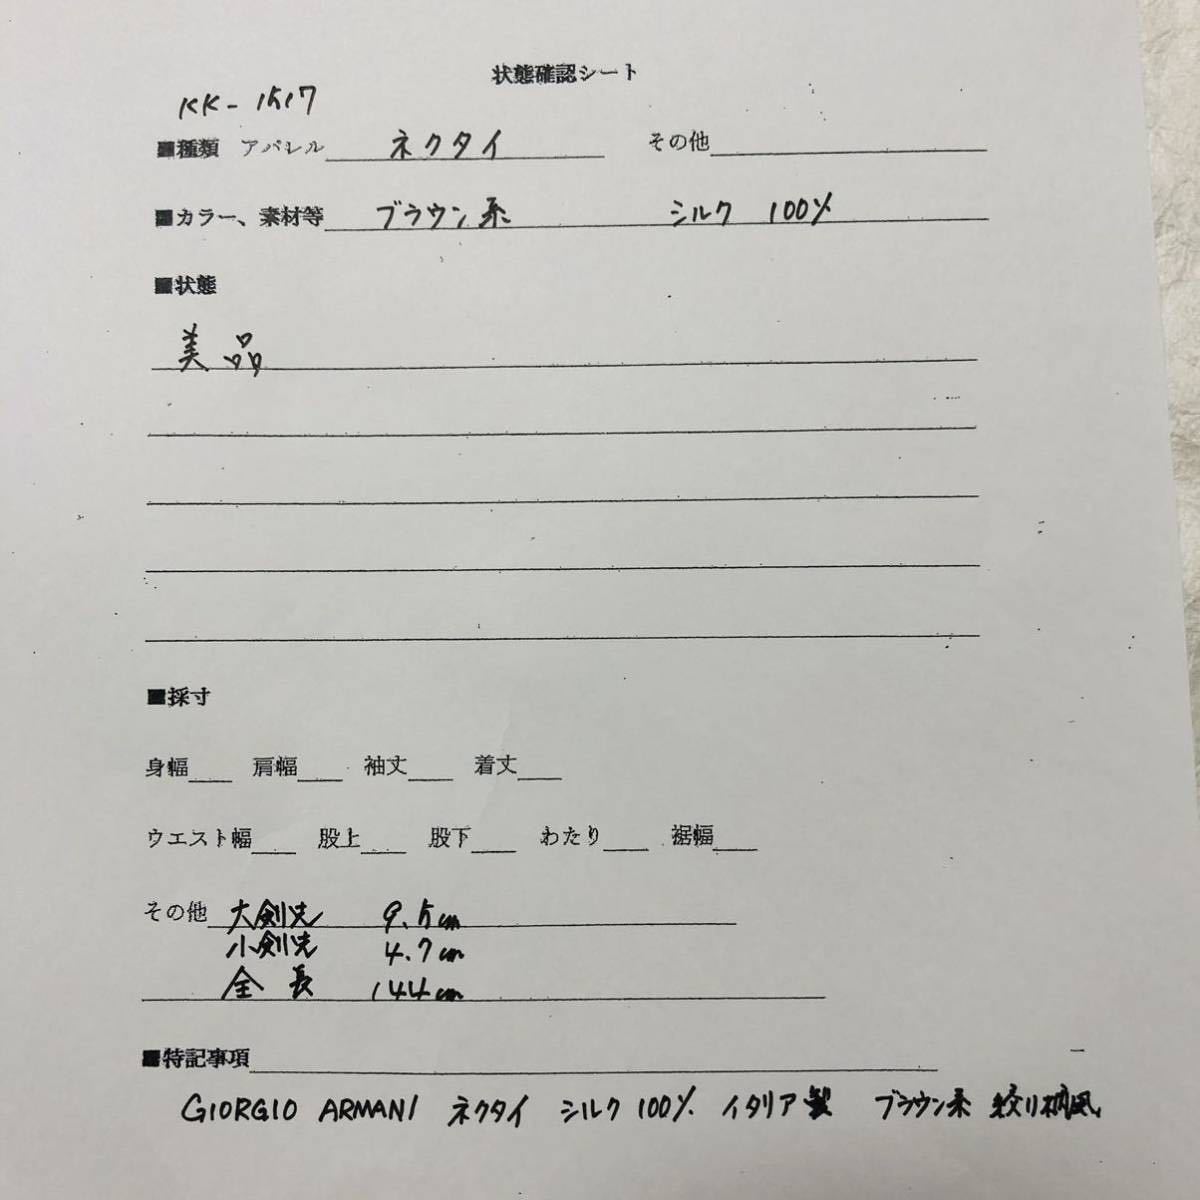 状態確認シート
KK-1517
■種類 アパレル ネクタイ その他
■カラー、素材等 ブラウン系 シルク 100%
■状態
美品
■採寸
身幅 肩幅 袖丈 着丈
ウエスト幅 股上 股下 わたり 裾幅
その他 大剣先 9.5cm
小剣先 4.7cm
全長 144cm
■特記事項
GIORGIO ARMANI ネクタイ シルク100% イタリア製 ブラウン系 絞り柄風